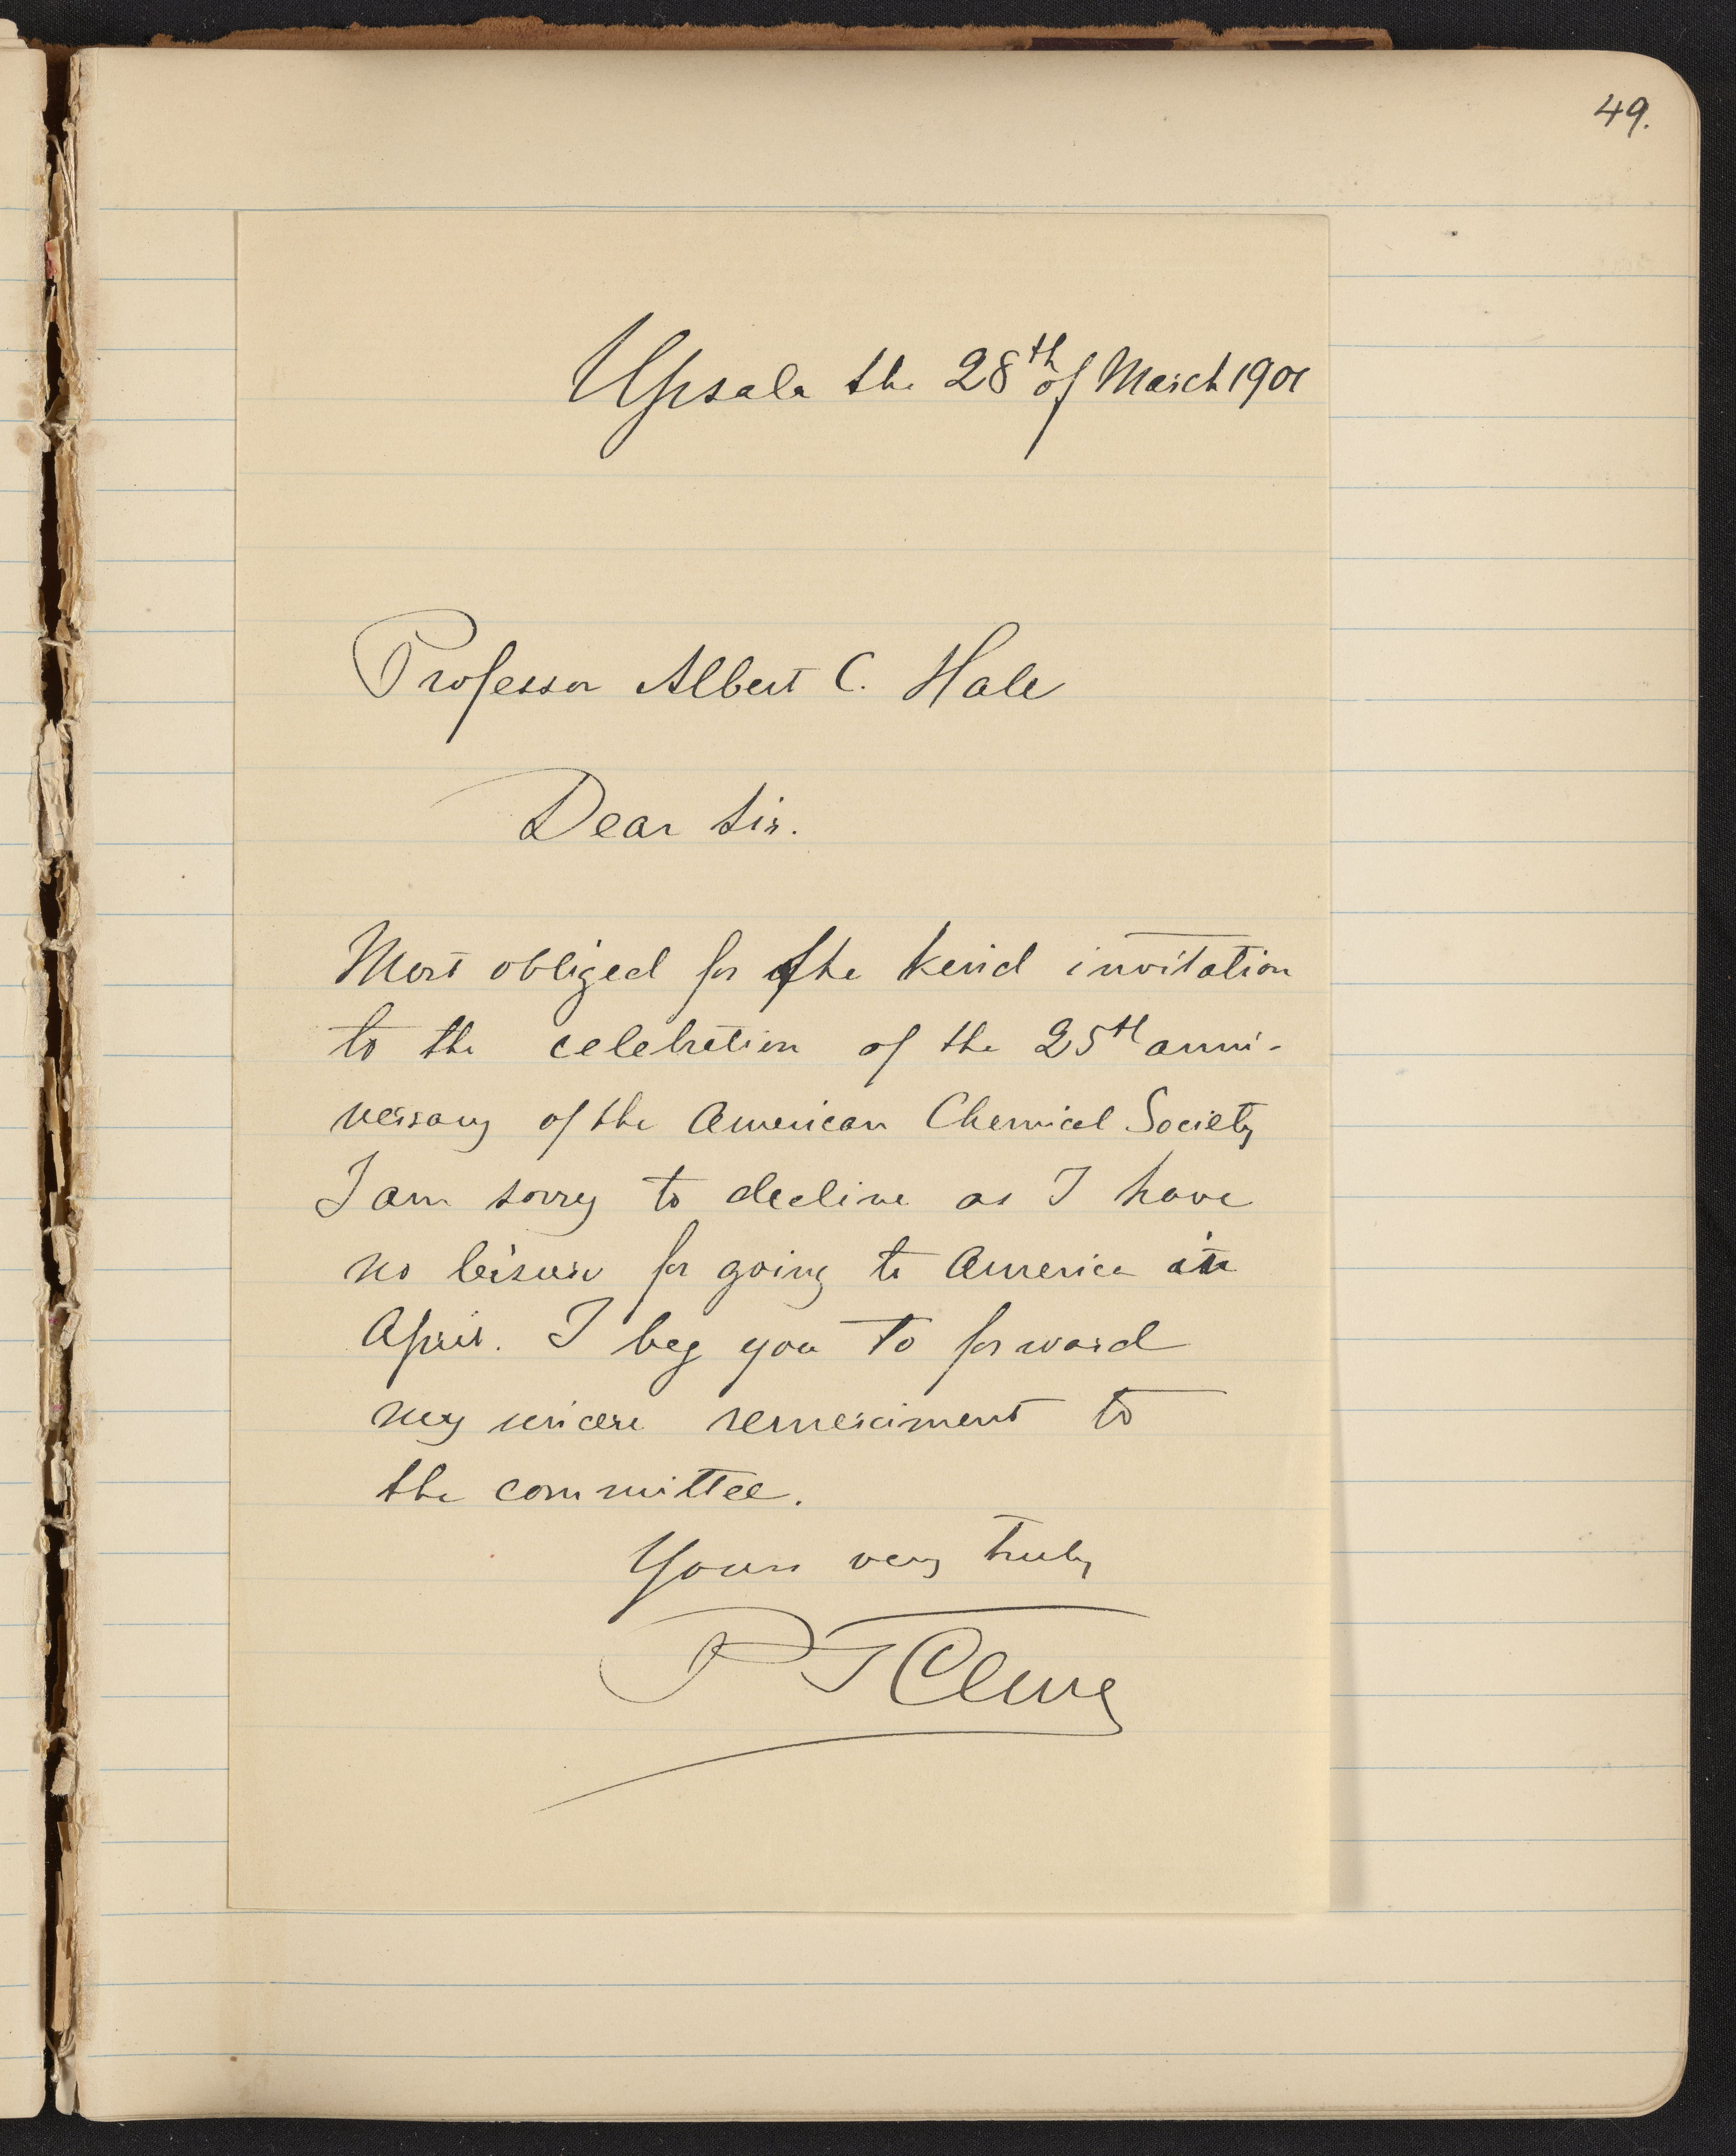 49.
Upsala the 28th of March 1901
Professor Albert C. Hale
Dear Sir.
Most obliged for the kind invitation
to the celebration of the 25th anni-
versary of the American Chemical Society
I am sorry to decline as I have
no leisure for going to America in
April. I beg you to forward
my sincere remerciment to
the committee.
Yours very truly
P T Cleve